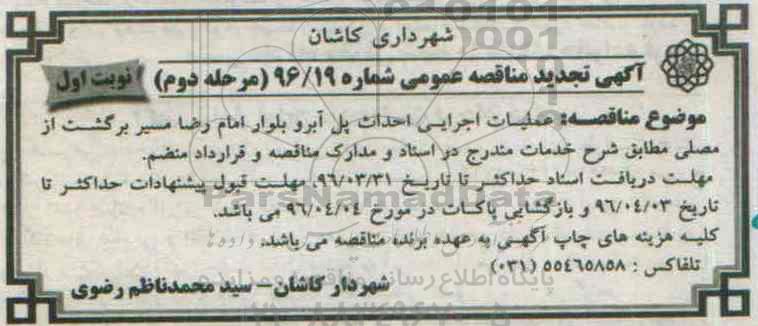 شهرداری کاشان
آگهی تجدید مناقصه عمومی شماره ۹۶/۱۹ (مرحله دوم)
نوبت اول
موضوع مناقصه: عملیات اجرایی احداث پل آبرو بلوار امام رضا مسیر برگشت از
مصلی مطابق شرح خدمات مندرج در اسناد و مدارک مناقصه و قرارداد منضم.
مهلت دریافت اسناد حداکثر تا تاریخ ۹۶/۰۳/۳۱، مهلت قبول پیشنهادات حداکثر تا
تاریخ ۹۶/۰۴/۰۳ و بازگشایی پاکات در مورخ ۹۶/۰۴/۰۴ می باشد.
کلیه هزینه های چاپ آگهی به عهده برنده مناقصه می باشد.
تلفاکس : ۵۵۴۶۵۸۵۸ (۰۳۱)
شهردار کاشان – سید محمدناظم رضوی
ParsNamadData
پایگاه اطلاع رسانی مناقصه و مزایده